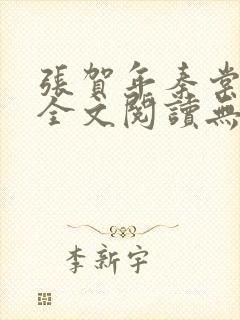 張賀年秦棠
全文閱讀無
李新宇